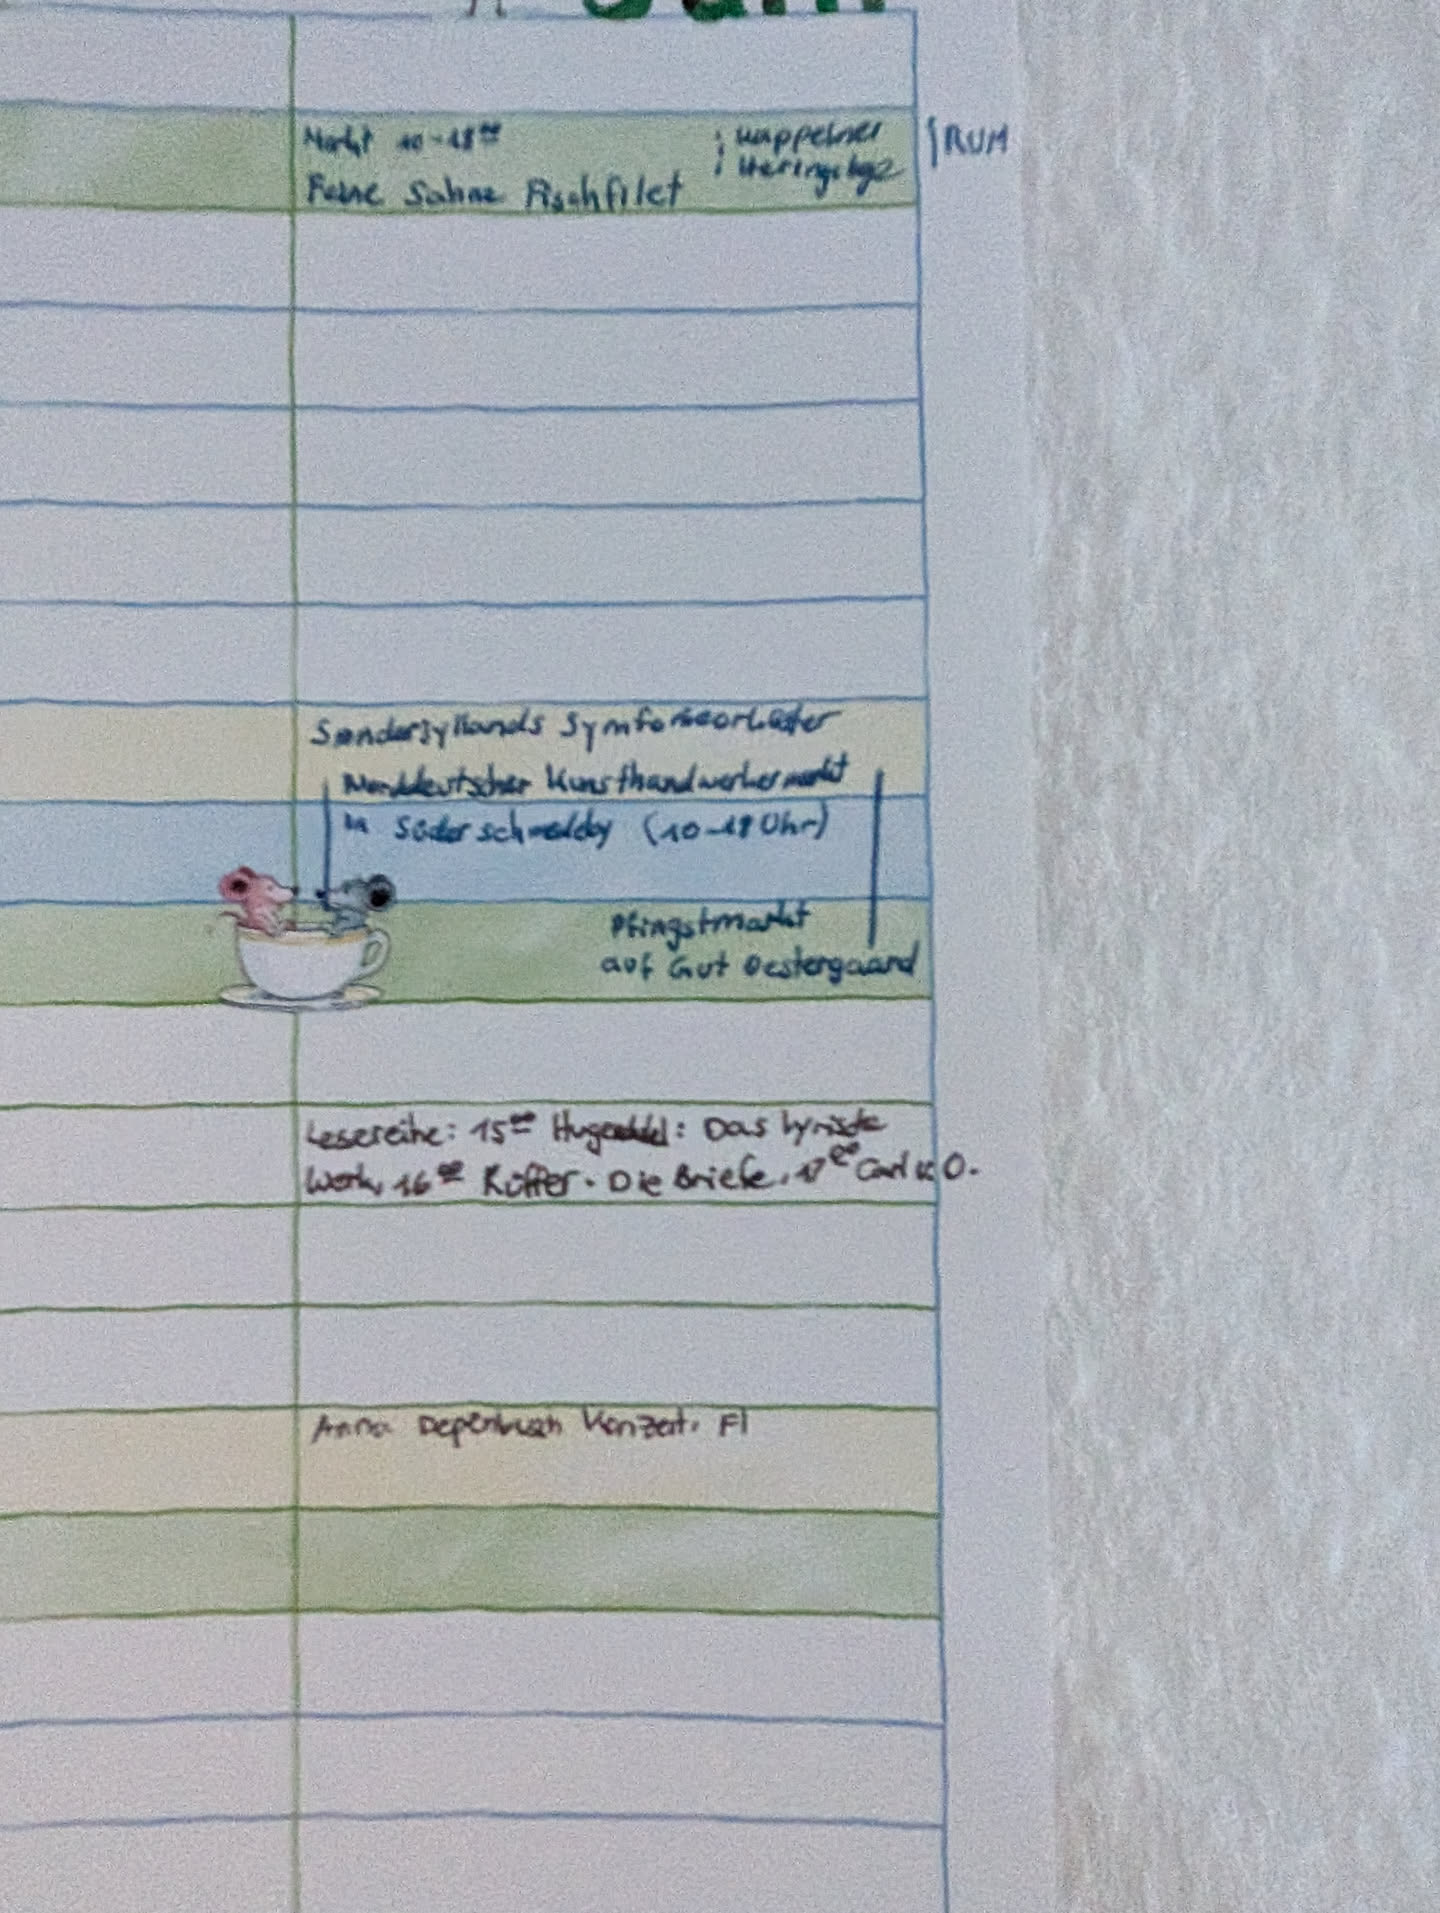 Juni
Markt 10-18⁰⁰
Kappelner
Heringstage
RUM
Feine Sahne Fischfilet
Sønderjyllands Symfoniorkester
Norddeutscher Kunsthandwerkermarkt
in Süderschmedeby (10-18 Uhr)
Pfingstmarkt
auf Gut Oestergaard
Lesereihe: 15⁰⁰ : Das lyrische
Werk, 16⁰⁰ Küffer. Die Briefe, 17⁰⁰ Carl v. O.
Anna Depenbusch Konzert, Fl